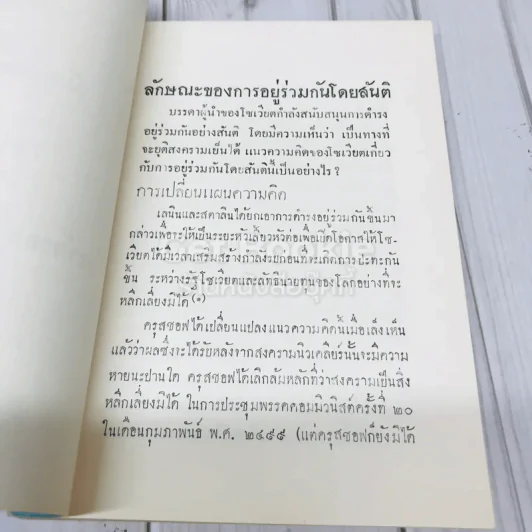 ลักษณะของการอยู่ร่วมกันโดยสันติ
บรรดาผู้นำของโซเวียตกำลังสนับสนุนการดำรง
อยู่ร่วมกันอย่างสันติ โดยมีความเห็นว่า เป็นทางที่
จะยุติสงครามเย็นได้ แนวความคิดของโซเวียตเกี่ยว
กับการอยู่ร่วมกันโดยสันตินี้เป็นอย่างไร ?
การเปลี่ยนแผนความคิด
เลนินและสตาลินได้ยกเอาการดำรงอยู่ร่วมกันขึ้นมา
กล่าวเพื่อจะให้เป็นระยะหัวเลี้ยวหัวต่อเพื่อเปิดโอกาสให้โซ-
เวียตได้มีเวลาเสริมสร้างกำลังรบก่อนที่จะเกิดการปะทะกัน
ขึ้น ระหว่างรัฐโซเวียตและลัทธินายทุนของโลกอย่างที่จะ
หลีกเลี่ยงมิได้ (๑)
ครุสชอฟได้เปลี่ยนแปลงแนวความคิดนี้เมื่อเล็งเห็น
แล้วว่าผลซึ่งจะได้รับหลังจากสงครามนิวเคลียร์นั้นจะมีความ
หายนะปานใด ครุสชอฟได้เลิกล้มหลักที่ว่าสงครามเป็นสิ่ง
หลีกเลี่ยงมิได้ ในการประชุมพรรคคอมมิวนิสต์ครั้งที่ ๒๐
ในเดือนกุมภาพันธ์ พ.ศ. ๒๔๙๙ (แต่ครุสชอฟก็ยังมิได้